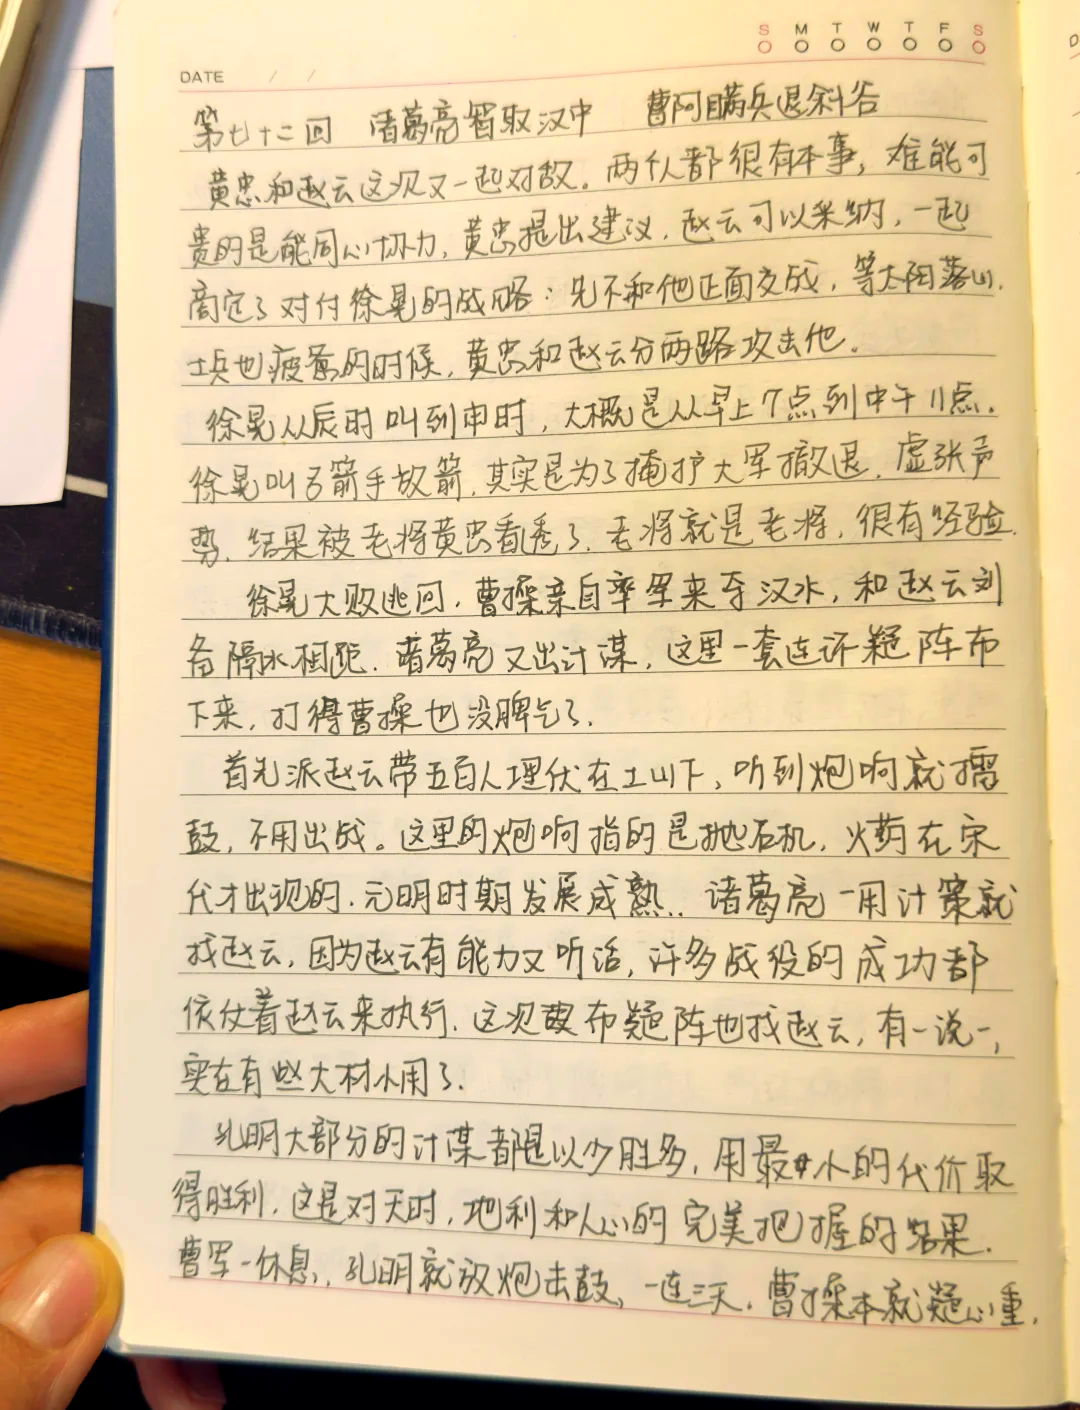 S M T W T F S
DATE / /
第七十二回 诸葛亮智取汉中 曹阿瞒兵退斜谷
黄忠和赵云这次又一起对敌。两个人都很有本事，难能可
贵的是能同心协力，黄忠提出建议，赵云可以采纳，一起
商定了对付徐晃的战略：先不和他正面交战，等太阳落山，
士兵也疲惫的时候，黄忠和赵云分两路攻击他。
徐晃从辰时叫到申时，大概是从早上7点到中午11点，
徐晃叫弓箭手放箭，其实是为了掩护大军撤退，虚张声
势，结果被老将黄忠看透了，老将就是老将，很有经验。
徐晃大败逃回，曹操亲自率军来夺汉水，和赵云刘
备隔水相距，诸葛亮又出计谋，这里一套连环疑阵布
下来，打得曹操也没脾气了。
首先派赵云带五百人埋伏在土山下，听到炮响就擂
鼓，不用出战。这里的炮响指的是抛石机，火药在宋
代才出现的，元明时期发展成熟。诸葛亮一用计策就
找赵云，因为赵云有能力又听话，许多战役的成功都
依仗着赵云来执行，这次要布疑阵也找赵云，有一说一，
实在有些大材小用了。
孔明大部分的计谋都是以少胜多，用最小的代价取
得胜利，这是对天时，地利和人心的完美把握的结果。
曹军一休息，孔明就放炮击鼓，一连三天，曹操本就疑心重，